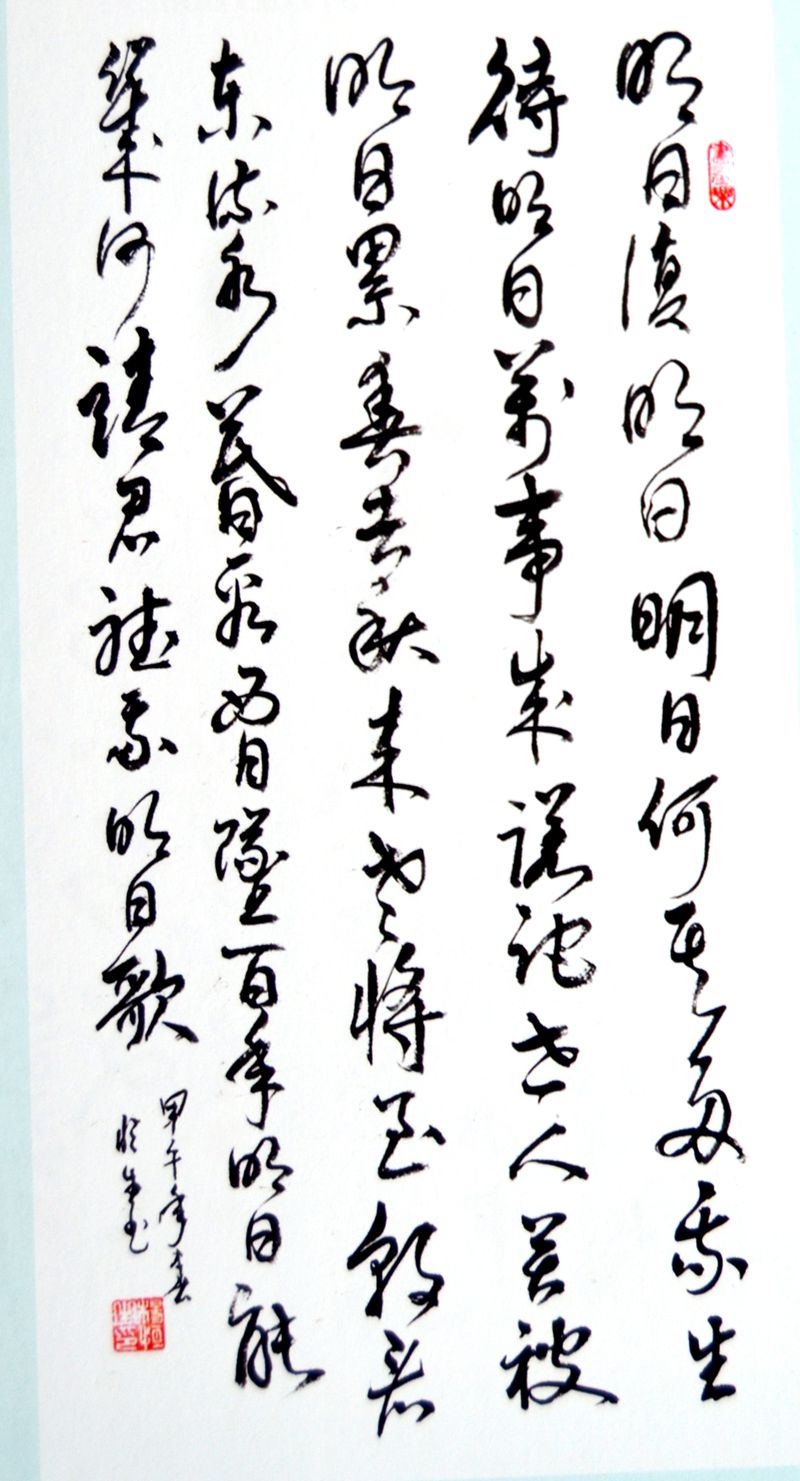 明日復明日明日何其多我生
待明日萬事成蹉跎世人苦被
明日累春去秋來老將至朝看
東流水暮看西日墜百年明日能
幾何請君聽我明日歌
甲午年春